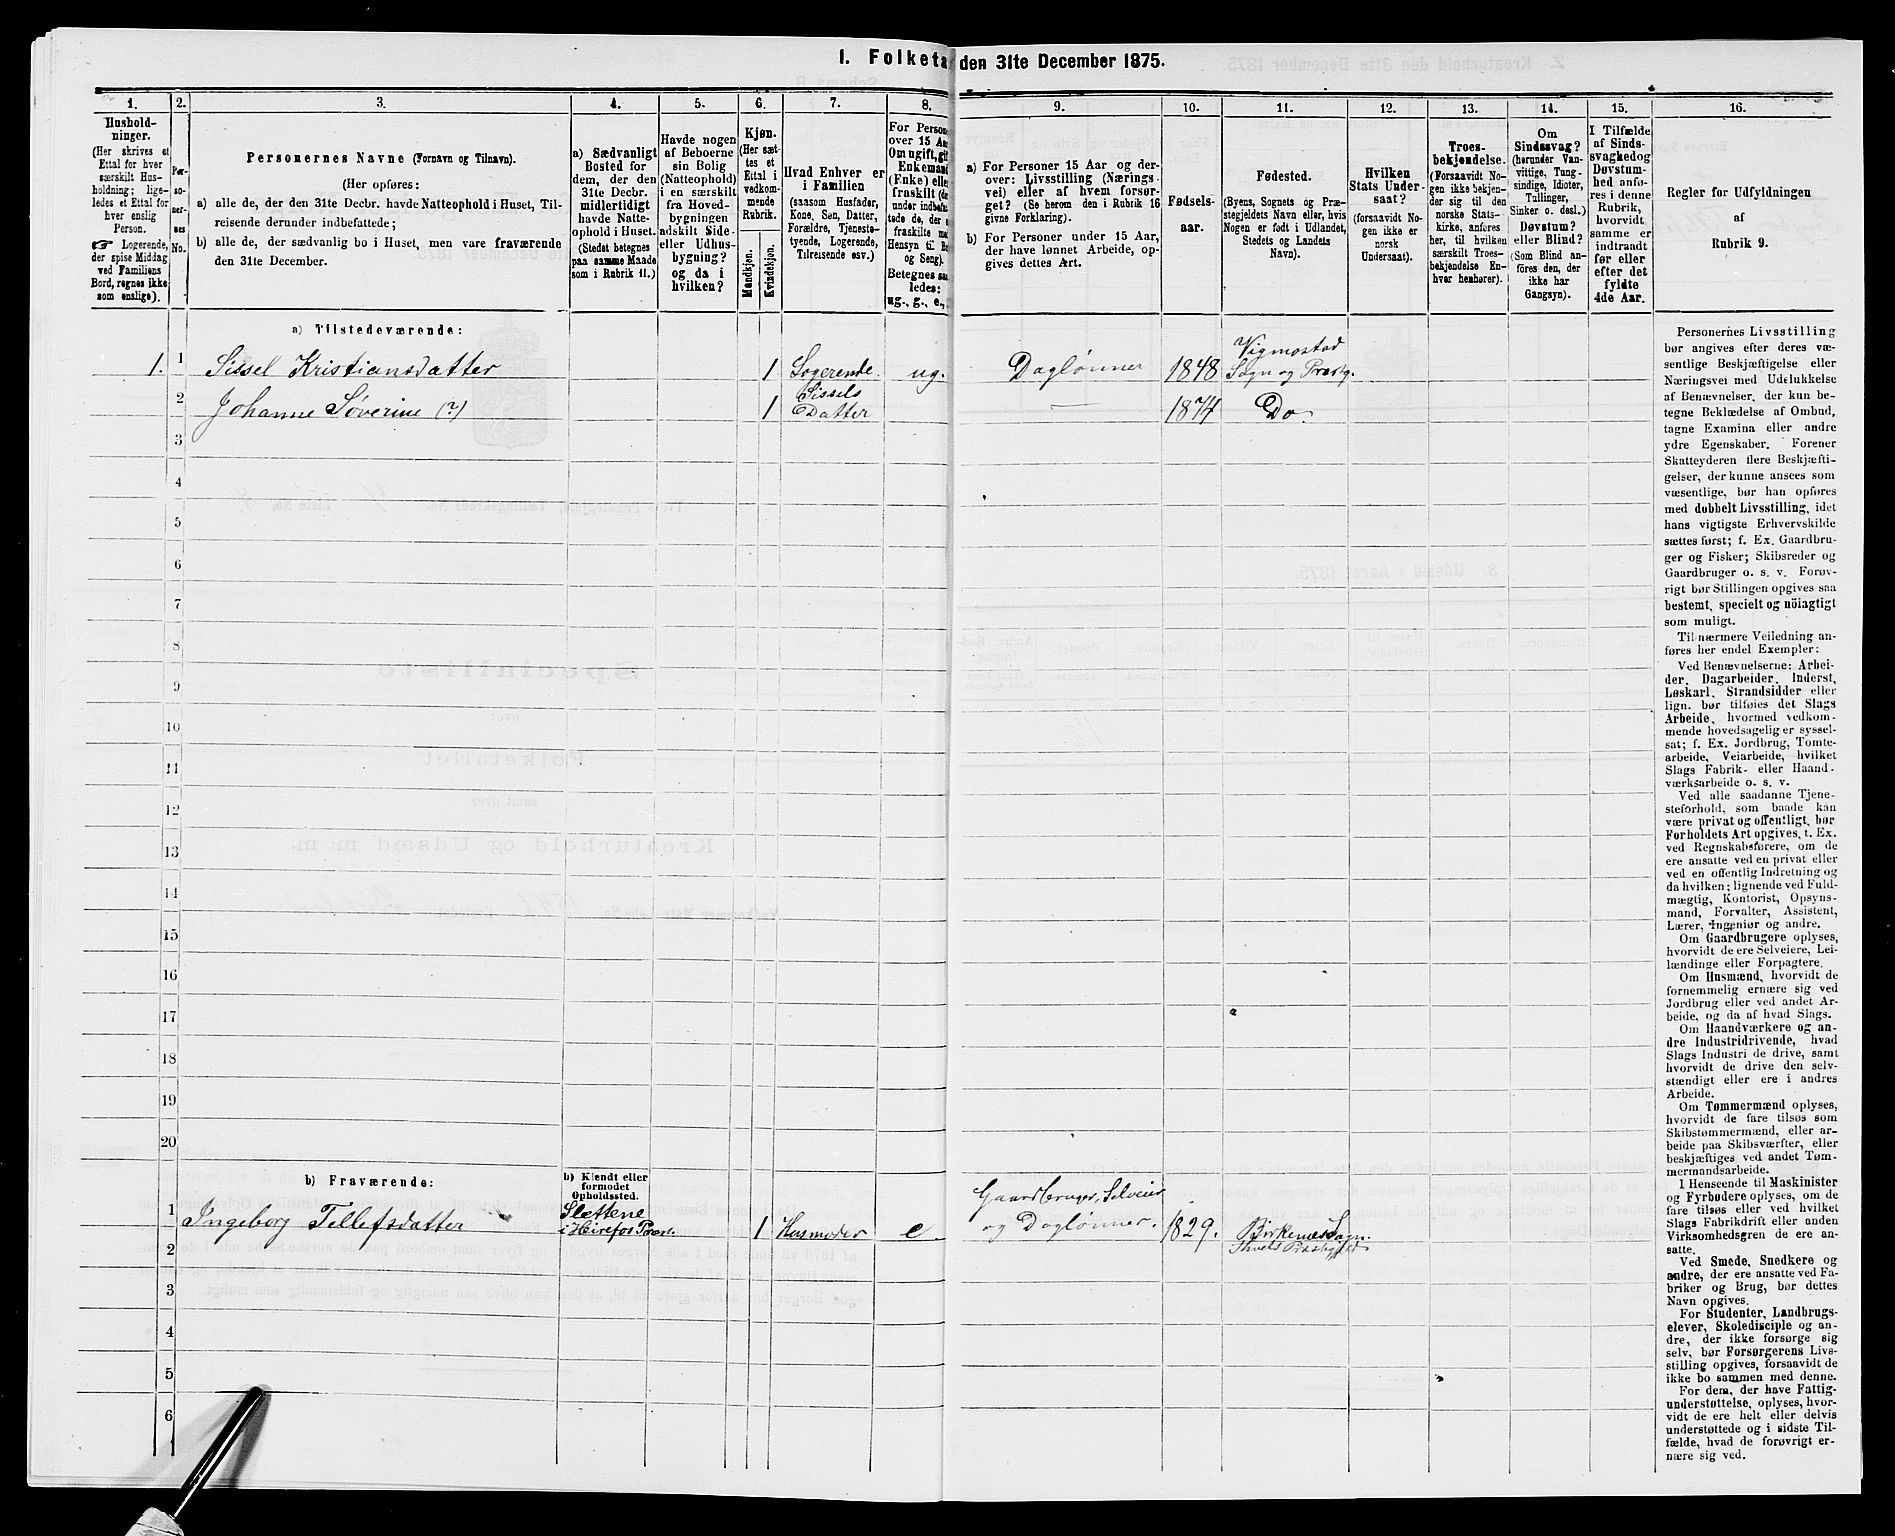 1. Folketa den 31te December 1875.
1.
Hushold-
ninger.
(Her skrives et
Ettal for hver
særskilt Hus-
holdning; lige-
ledes et Ettal for
hver enslig
Person.
☞ Logerende,
der spise Middag
ved Familiens
Bord, regnes ikke
som enslige).
2.
Per-
so-
ner-
nes
No.
3.
Personernes Navne (Fornavn og Tilnavn).
(Her opføres:
a) alle de, der den 31te Decbr. havde Natteophold i Huset, Til-
reisende derunder indbefattede;
b) alle de, der sædvanlig bo i Huset, men vare fraværende
den 31te December.
4.
a) Sædvanligt
Bosted for
dem, der den
31te Decbr.
midlertidigt
havde Natte-
ophold i Huset.
(Stedet betegnes
paa samme Maade
som i Rubrik 11.)
5.
Havde nogen
af Beboerne
sin Bolig
(Natteophold)
i en særskilt
fra Hoved-
bygningen
adskilt Side-
eller Udhus-
bygning?
og da i
hvilken?
6.
Kjøn.
(Her sæt-
tes et
Ettal i
vedkom-
mende
Rubrik.
Mandkjøn.
Kvindekjøn.
7.
Hvad Enhver er
i Familien
(saasom Husfader,
Kone, Søn, Datter,
Forældre, Tjeneste-
tyende, Logerende,
Tilreisende osv.)
8.
For Person
over 15 Aa
Om ugift, gif
Enkemand
(Enke) elle
fraskilt (de
under indbefat-
tede de, der e
fraskilte me
Hensyn til Bo
og Seng).
Betegnes saa
ledes:
ug., g., e.,
9.
a) For Personer 15 Aar og der-
over: Livsstilling (Nærings-
vei) eller af hvem forsør-
get? (Se herom den i Rubrik 16
givne Forklaring).
b) For Personer under 15 Aar,
der have lønnet Arbeide, op-
gives dettes Art.
10.
Fødsels-
aar.
11.
Fødested.
(Byens, Sognets og Præ-
stegjeldets Navn eller, hvis
Nogen er født i Udlandet,
Stedets og Landets
Navn).
12.
Hvilken
Stats Under-
saat?
(forsaavidt No-
gen ikke er
norsk
Undersaat).
13.
Troes-
bekjendelse.
(Forsaavidt No-
gen ikke bekjen-
der sig til den
norske Stats-
kirke, anføres
her, til hvilken
særskilt Troes-
bekjendelse En-
hver henhører).
14.
Om
Sindssvag?
(herunder Van-
vittige, Tung-
sindige, Idioter,
Tullinger,
Sinker o. desl.)
Døvstum?
eller Blind?
(Som Blind an-
føres den, der
ikke har
Gangsyn).
15.
I Tilfælde
af Sinds-
svaghed og
Døvstum-
hed anfø-
res i denne
Rubrik,
hvorvidt
samme er
indtraadt
før eller
efter det
fyldte
4de Aar.
16.
Regler for Udfyldningen
af
Rubrik 9.
a) Tilstedeværende:
1. 1 Sissel Kristiansdatter 1 Logerende. ug. Daglønner 1848 Vigmostad
Sogn og Præstg.
2 Johanne Søverine (?) 1 Sissels
Datter — 1874 Do.
3
4
5
6
7
8
9
10
11
12
13
14
15
16
17
18
19
20
b) Fraværende:
b) Kjendt eller
formodet
Opholdssted.
1 Ingeborg Tellefsdatter Slettene
i Hirefos Præst. 1 Husmoder e. Gaardbruger, Selveier
og Daglønner. 1829. Birkenæs Sogn.
2
3
4
5
6
Personernes Livsstilling
bør angives efter deres væ-
sentlige Beskjæftigelse eller
Næringsvei med Udelukkelse
af Benævnelser, der kun be-
tegne Beklædelse af Ombud,
tagne Examina eller andre
ydre Egenskaber. Forener
Skatteyderen flere Beskjæfti-
gelser, der kunne ansees som
væsentlige, bør han opføres
med dobbelt Livsstilling, idet
hans vigtigste Erhvervskilde
sættes først; f. Ex. Gaardbru-
ger og Fisker; Skibsreder og
Gaardbruger o. s. v. Forøv-
rigt bør Stillingen opgives saa
bestemt, specielt og nöiagtigt
som muligt.
Til nærmere Veiledning an-
føres her endel Exempler:
Ved Benævnelserne: Arbei-
der, Dagarbeider, Inderst,
Løskarl, Strandsidder eller
lign. bør tilføies det Slags
Arbeide, hvormed vedkom-
mende hovedsagelig er syssel-
sat; f. Ex. Jordbrug, Tomte-
arbeide, Veiarbeide, hvilket
Slags Fabrik- eller Haand-
værksarbeide o. s. v.
Ved alle saadanne Tjene-
steforhold, som baade kan
være privat og offentligt, bør
Forholdets Art opgives, t. Ex.
ved Regnskabsførere, om de
ere ansatte ved en privat eller
ved en offentlig Indretning og
da hvilken; lignende ved Fuld-
mægtig, Kontorist, Opsyns-
mand, Forvalter, Assistent,
Lærer, Ingeniør og andre.
Om Gaardbrugere oplyses,
hvorvidt de ere Selveiere, Lei-
lændinge eller Forpagtere.
Om Husmænd, hvorvidt de
fornemmelig ernære sig ved
Jordbrug eller ved andet Ar-
beide, og da af hvad Slags.
Om Haandværkere og an-
dre Industridrivende, hvad
Slags Industri de drive, samt
hvorvidt de drive den selv-
stændigt eller ere i andres
Arbeide.
Om Tømmermænd oplyses,
hvorvidt de fare tilsøs som
Skibstømmermænd, eller ar-
beide paa Skibsværfter, eller
beskjæftiges ved andet Tøm-
mermandsarbeide.
I Henseende til Maskinister
og Fyrbødere oplyses, om de
fare tilsøs eller ved hvilket
Slags Fabrikdrift eller anden
Virksomhedsgren de ere an-
satte.
Ved Smede, Snedkere og
andre, der ere ansatte ved Fa-
briker og Brug, bør dettes
Navn opgives.
For Studenter, Landbrugs-
elever, Skoledisciple og an-
dre, der ikke forsørge sig
selv, bør Forsørgerens Livs-
stilling opgives, forsaavidt de
ikke bo sammen med denne.
For dem, der have Fattig-
understøttelse, oplyses, hvor-
vidt de ere helt eller delvis
understøttede og i sidste Til-
fælde, hvad de forøvrigt er-
nære sig ved.